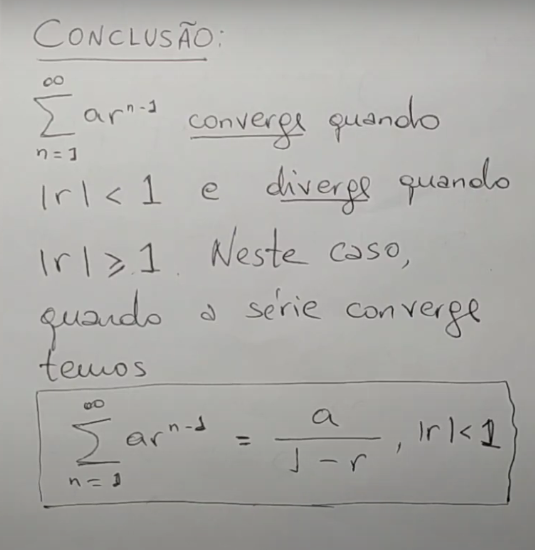 CONCLUSÃO:
∞
∑ arⁿ⁻¹ converge quando
n=1
|r| < 1 e diverge quando
|r| ⩾ 1. Neste caso,
quando a série converge
temos
∞
∑ arⁿ⁻¹ = a/(1-r), |r|<1
n=1